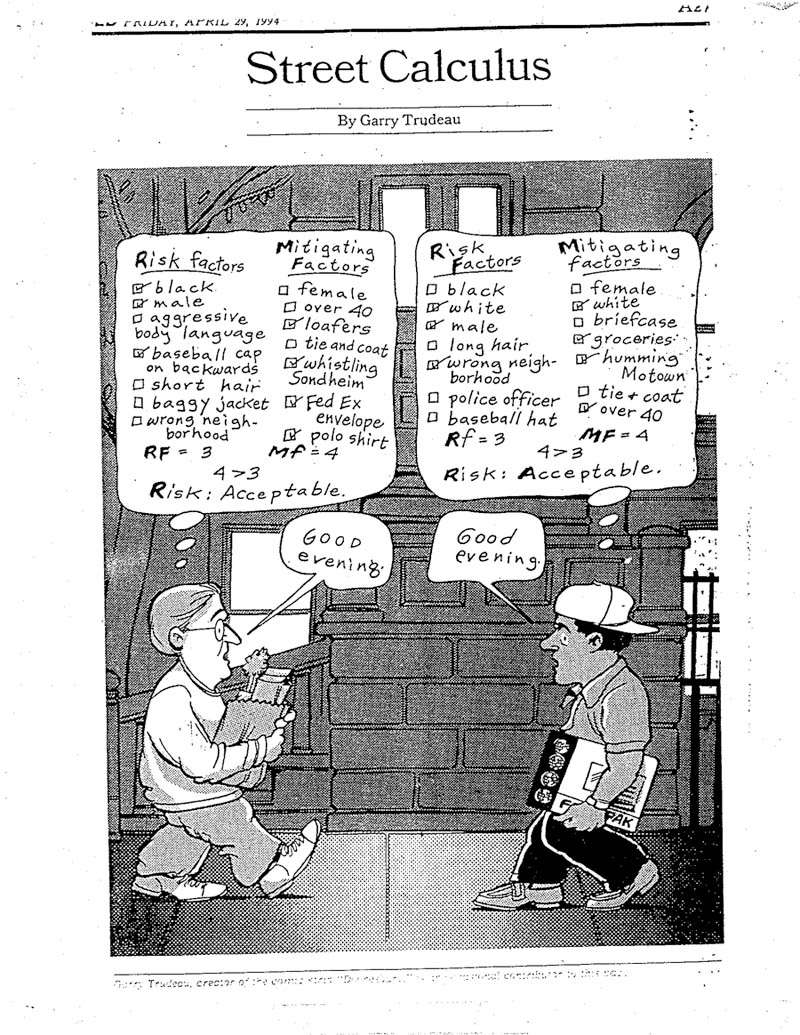 FRIDAY, APRIL 29, 1994
Street Calculus
By Garry Trudeau
Risk factors
black
male
aggressive
body language
baseball cap
on backwards
short hair
baggy jacket
wrong neigh-
borhood
RF = 3
Mitigating
Factors
female
over 40
loafers
tie and coat
whistling
Sondheim
Fed Ex
envelope
polo shirt
Mf = 4
4 > 3
Risk: Acceptable.
Risk
Factors
black
white
male
long hair
wrong neigh-
borhood
police officer
baseball hat
Rf = 3
Mitigating
factors
female
white
briefcase
groceries
humming
Motown
tie + coat
over 40
MF = 4
4 > 3
Risk: Acceptable.
Good
evening.
Good
evening.
PAK
Garry Trudeau, creator of the comic strip contributor to this page.